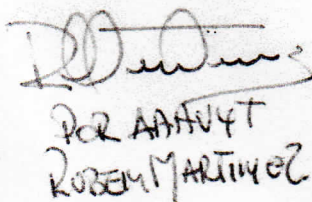 POR AAAVYT
RUBEN MARTINEZ